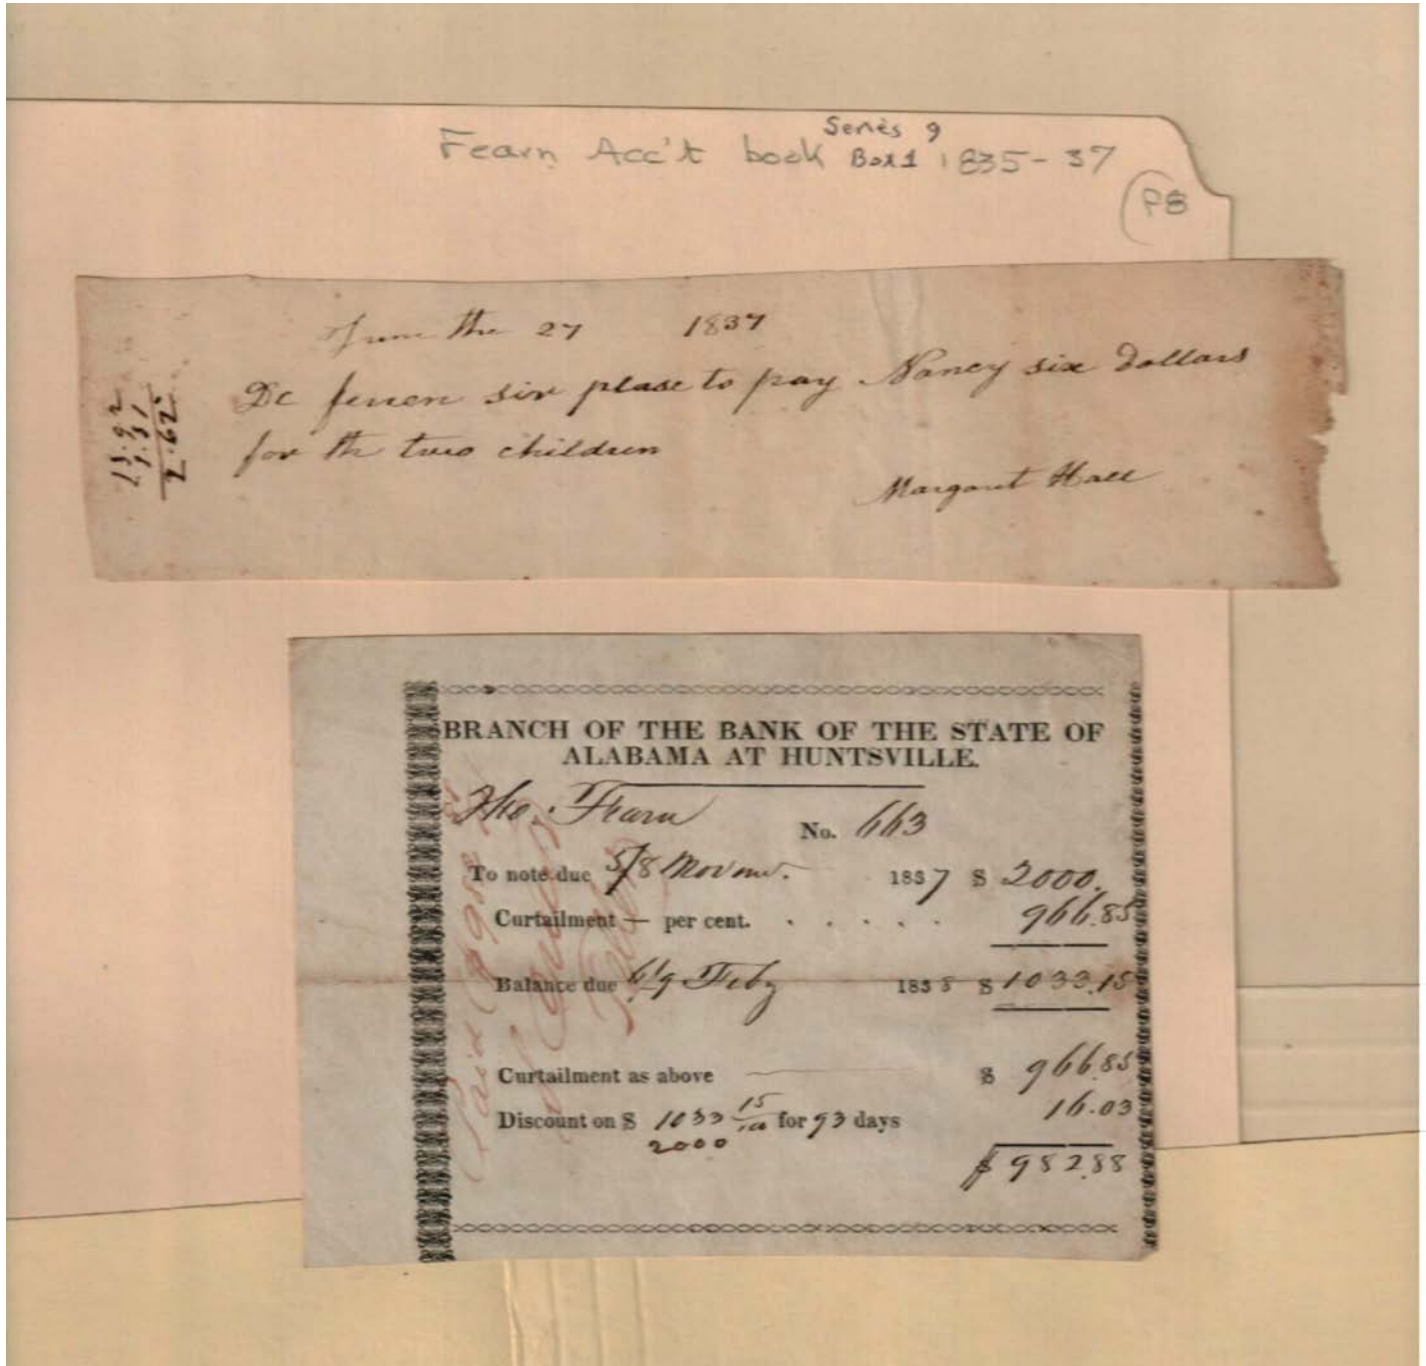 Series 9
Fearn Acc't book Box 1 1835-37
P8
June the 27 1837
Dc feren sir plase to pay Nancy six Dollars
for th two children
Margaret Hall
13.92
1.31
2.62
BRANCH OF THE BANK OF THE STATE OF
ALABAMA AT HUNTSVILLE.
Tho. Fearn
No. 663
To note due 5/8 Novem. 1837 $ 2000.
Curtailment — per cent. . . . . . 966.85
Balance due 6/9 Feby 1838 $ 1033.15
Curtailment as above $ 966.85
Discount on $ 1033 15/100 for 93 days 16.03
2000
$ 982.88
Paid